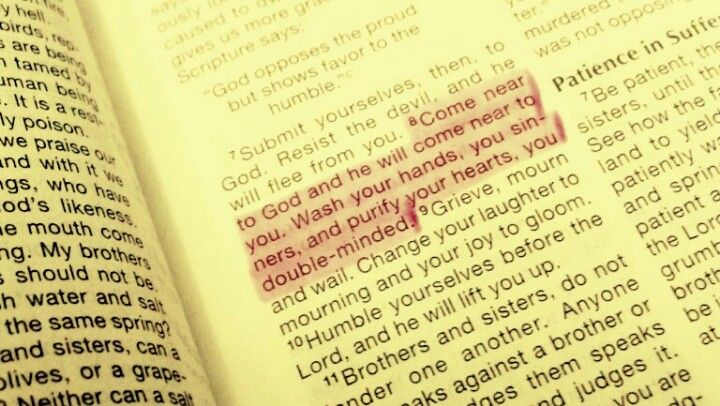 y hell.
birds, rep-
s are being
n tamed by
uman being
s. It is a rest-
ly poison.
we praise our
and with it we
ngs, who have
od's likeness.
e mouth come
ng. My brothers
s should not be.
h water and salt
the same spring?
and sisters, can a
olives, or a grape-
? Neither can a salt
caused to
gives us more
Scripture says:
"God opposes the proud
but shows favor to the
humble."c
7Submit yourselves, then, to
God. Resist the devil, and he
will flee from you. 8Come near
to God and he will come near to
you. Wash your hands, you sin-
ners, and purify your hearts, you
double-minded. 9Grieve, mourn
and wail. Change your laughter to
mourning and your joy to gloom.
10Humble yourselves before the
Lord, and he will lift you up.
11Brothers and sisters, do not
ander one another. Anyone
eaks against a brother or
dges them speaks
and judges it.
you are
murdered
was not opposing
Patience in Suffe
7Be patient, the
sisters, until th
See how the fa
land to yield
patiently w
and spring
patient a
the Lord
grumb
broth
be j
at